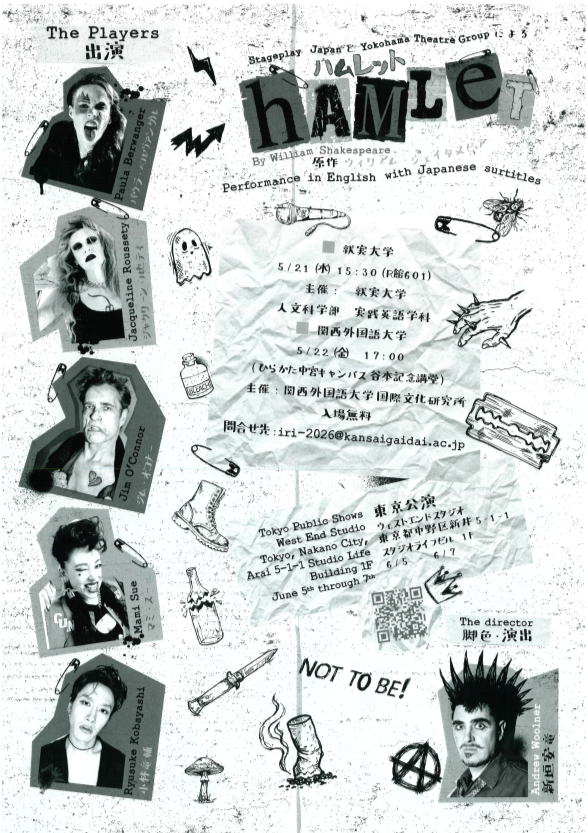 The Players
出演
Paula Berwanger
Jacqueline Roussety
Jim O'Connor
Mami Sue
マミ・スー
Ryusuke Kobayashi
小林竜輔
Stageplay Japanと Yokohama Theatre Groupによる
ハムレット
hAMLeT
By William Shakespeare
原作 ウィリアム・シェイクスピア
Performance in English with Japanese surtitles
就実大学
5/21 (木) 15:30 (R館601)
主催： 就実大学
人文科学部 実践英語学科
関西外国語大学
5/22 (金) 17:00
(ひらかた中宮キャンパス 谷本記念講堂)
主催：関西外国語大学国際文化研究所
入場無料
問合せ先：iri-2026@kansaigaidai.ac.jp
BLEACH
Tokyo Public Shows
West End Studio
Tokyo, Nakano City,
Arai 5-1-1 Studio Life
Building 1F
June 5th through 7th
東京公演
ウェストエンドスタジオ
東京都中野区新井 5-1-1
スタジオライフビル 1F
6/5 6/7
NOT TO BE!
The director
脚色・演出
Andrew Woolner